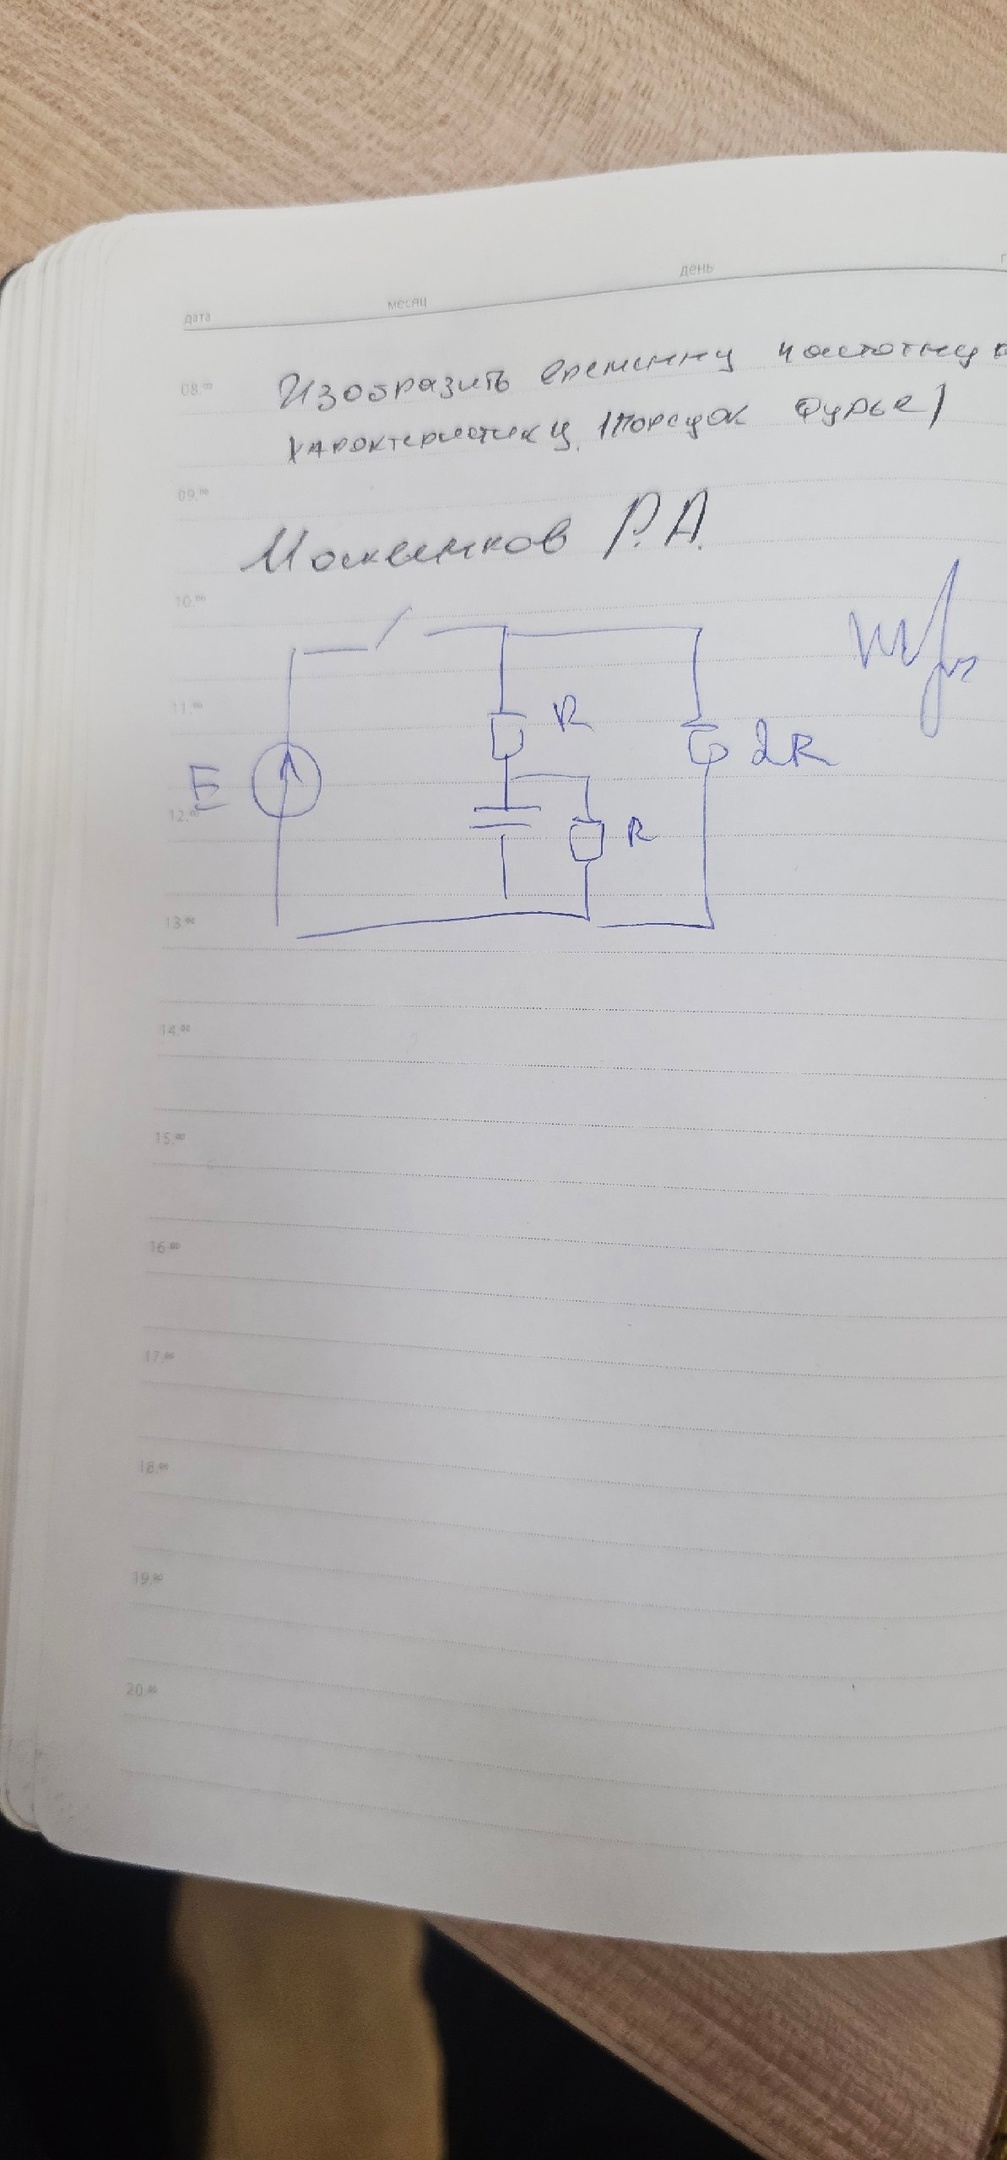 дата месяц день
08.00 Изобразить времинну частотную
характеристику. (Порсуок Фурье)
09.00
Р.А.
10.00
11.00 R
E 2R
12.00 R
13.00
14.00
15.00
16.00
17.00
18.00
19.00
20.00